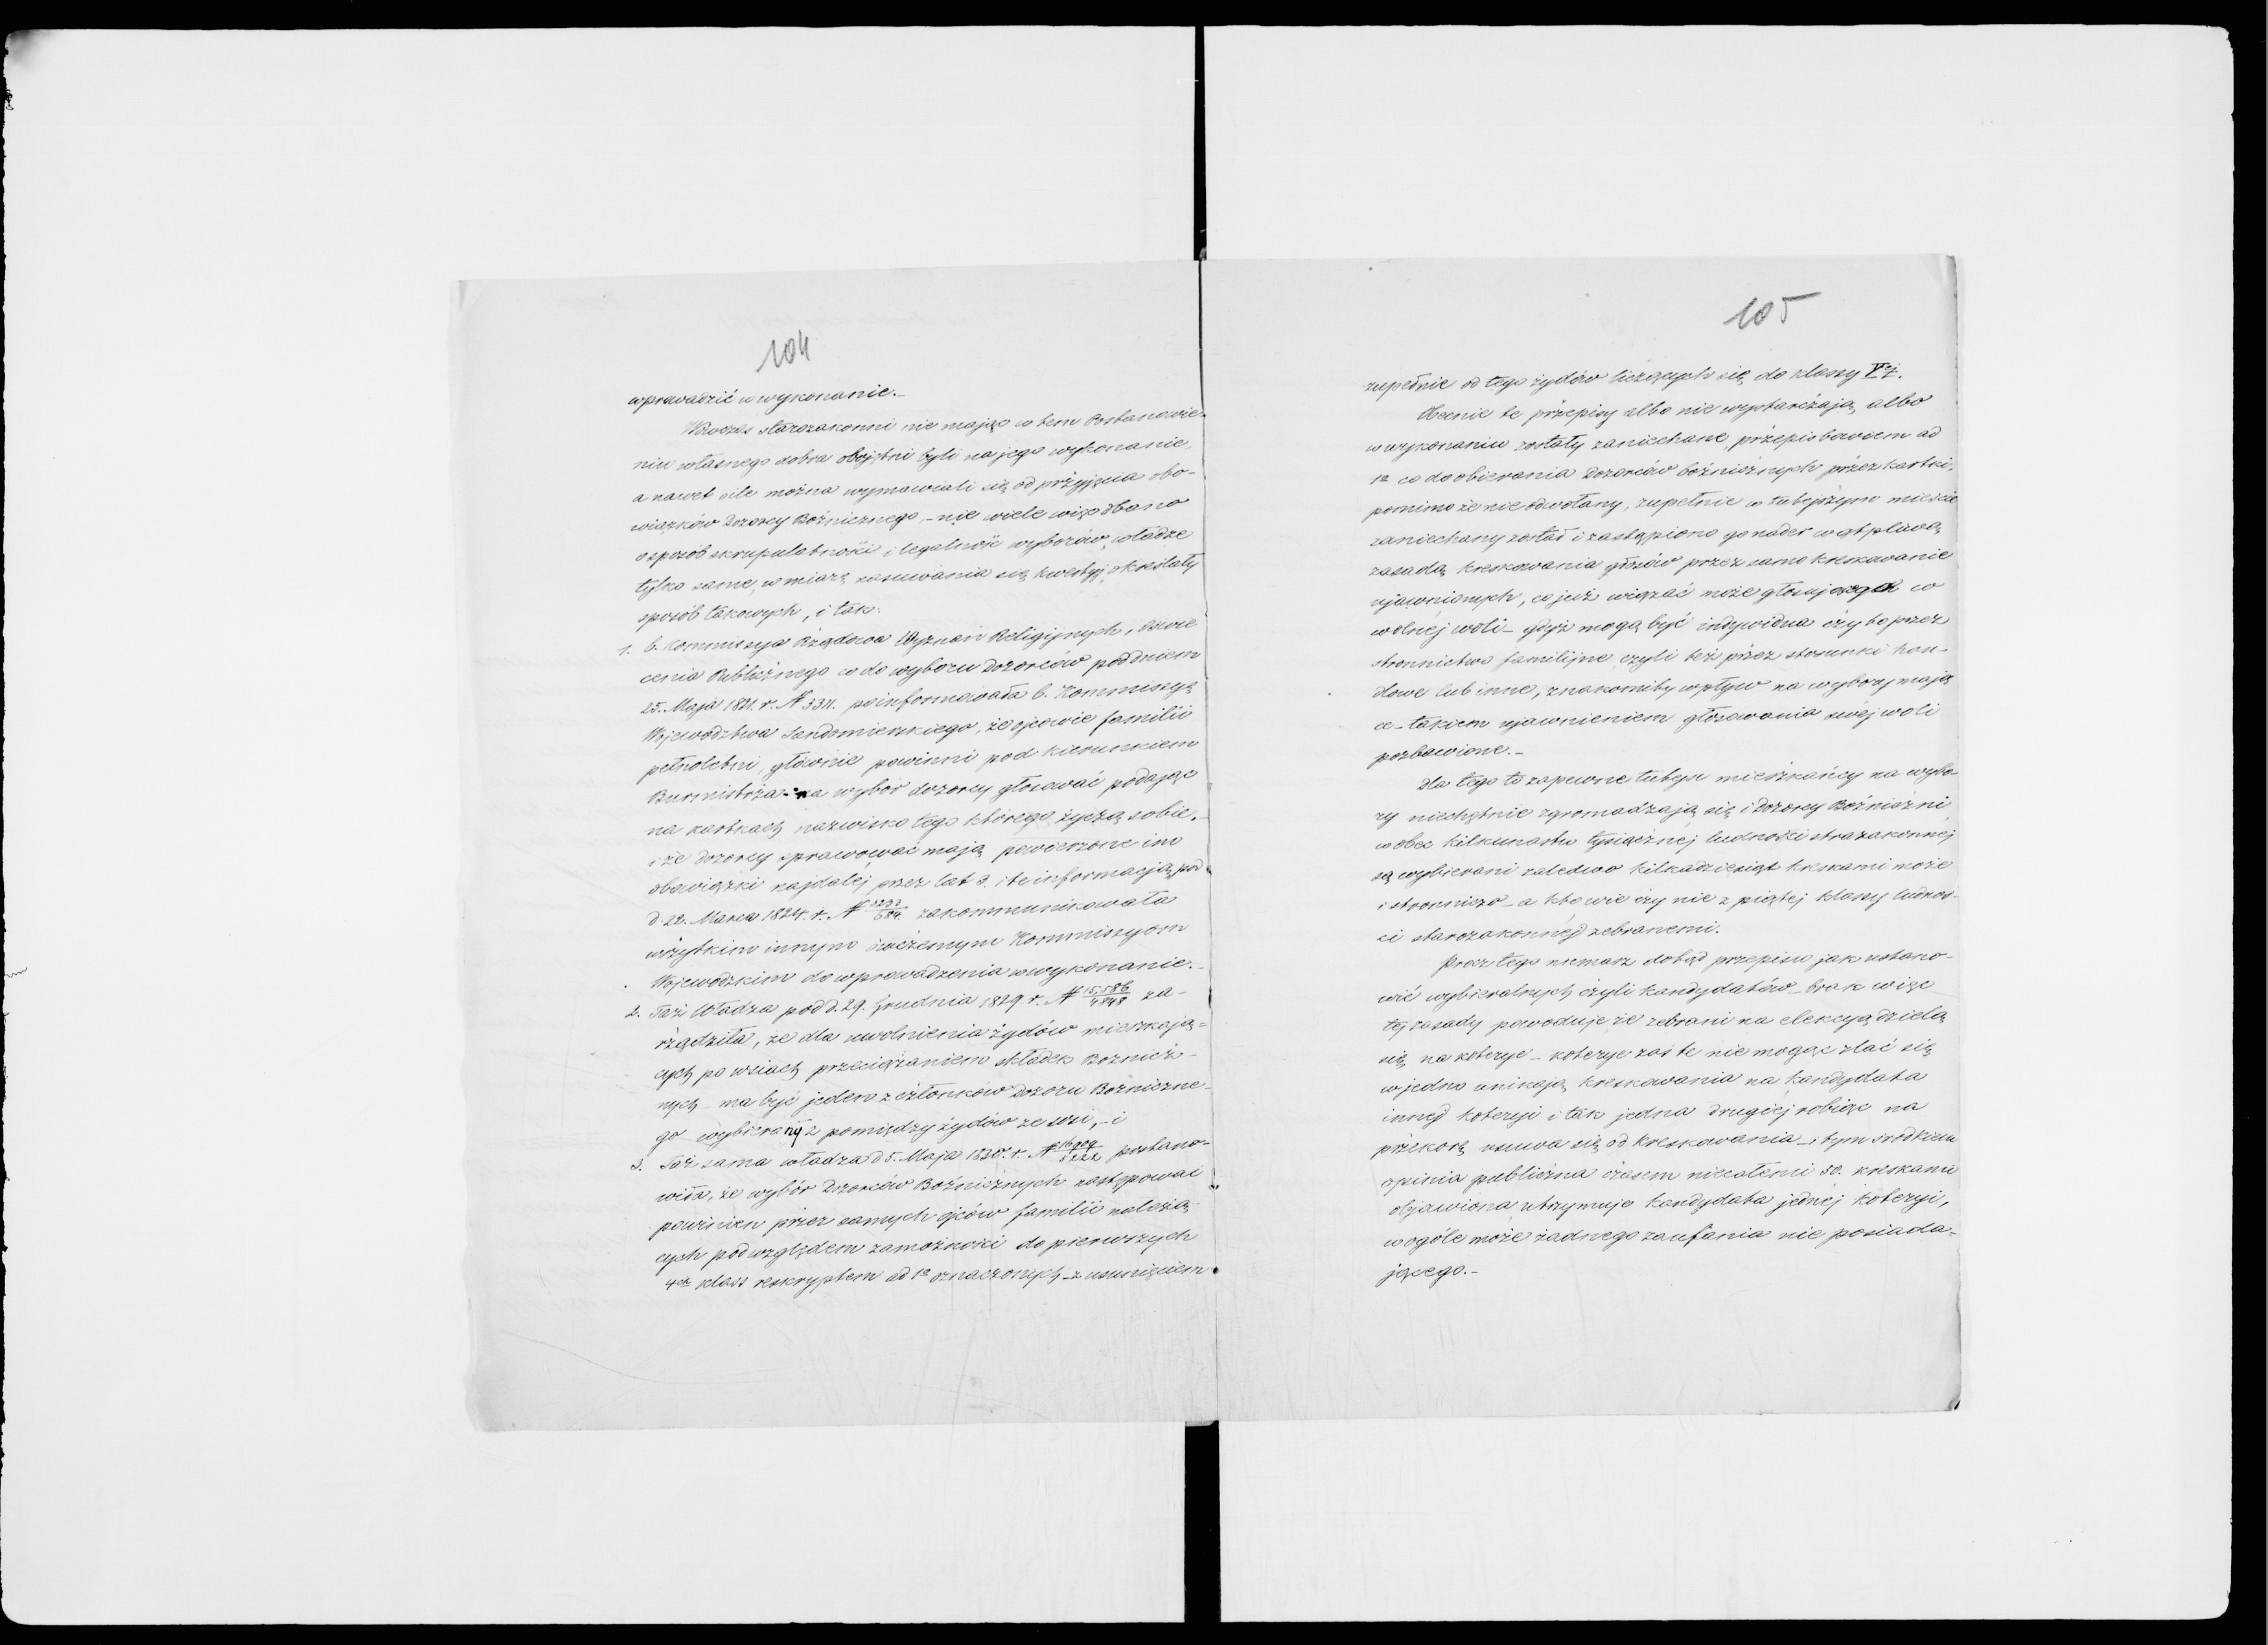 104
wprowadzić w wykonanie.-
Wówczas starozakonni nie mając w tem Postanowie-
niu własnego dobra obojętni byli na jego wykonanie,
a nawet ile można wymawiali się od przyjęcia obo-
wiązków Dozorcy Bóżnicznego,- nie wiele więc dbano
o sposób skrupulatności i legalność wyborów, władze
tylko same, w miarę nasuwania się kwestyj, określały
sposób takowych, i tak:
1. b. Kommissya Rządowa Wyznań Religijnych i Oświe
cenia Publicznego co do wyboru Dozorców pod dniem
25. Maja 1821. r. N 3311. poinformowała b. Kommissyą
Województwa Sandomierskiego, że ojcowie familii
pełnoletni, głównie powinni pod kierunkiem
Burmistrza na wybór dozorcy głosować podając
na kartkach nazwisko tego którego życzą sobie.-
i że dozorcy sprawować mają powierzone im
obowiązki najdalej przez lat 3. i te informacją pod
d. 22. Marca 1824. r. N /684 zakommunikowała
wszystkim innym ówczesnym Kommissyom
Wojewódzkim do wprowadzenia w wykonanie.-
2. Taż Władza pod d. 29. Grudnia 1829. r. N 15,586/4848 za-
rządziła, że dla uwolnienia żydów mieszkają=
cych po wsiach przeciążaniem składek Boznicz-
nych - ma być jeden z członków Dozoru Bóżniczne-
go wybierany z pomiędzy żydów ze wsi,- i
3. Taż sama władza d 5. Maja 1830. r. N /5222 postano=
wiła, że wybór Dozorców Bóżnicznych następować
powinien przez samych ojców familii należą-
cych pod względem zamożności do pierwszych
4ch klass reskryptem ad 1o oznaczonych - z usunięciem
105
zupełnie od tego żydów liczących się do klassy Vej.
Obecnie te przepisy albo nie wystarczają albo
w wykonaniu zostały zaniechane, przepis bowiem ad
1o co do obierania Dozorców bóżnicznych przez kartki,
pomimo że nie odwołany, zupełnie w tutejszym mieście
zaniechany został i zastąpiono go nader wątpliwą
zasadą kreskowania głosów przez samo kreskowanie
ujawnionych, co już wiązać może głosującego w
wolnej woli - gdyż mogą być indywidua czy to przez
stronnictwo familijne czyli też przez stosunki han-
dlowe lub inne, znakomity wpływ na wybory mają
ce - takiem ujawnieniem głosowania swej woli
pozbawione.-
Dla tego to zapewne tutejsi mieszkańcy na wybo-
ry niechętnie zgromadzają się i Dozorcy Bóżniczni
wobec kilkunastu tysiącznej ludności starozakonnej
są wybierani zaledwo kilkadziesiąt kreskami może
i stronniczo - a kto wie czy nie z piątej klassy ludnoś-
ci starozakonnej zebranemi.
Prócz tego niemasz dotąd przepisu jak ustano-
wić wybieralnych czyli kandydatów - brak więc
tej zasady powoduje że zebrani na elekcyą dzielą
się na koterye - koterye zaś te nie mogąc zlać się
w jedno unikają kreskowania na kandydata
innej koteryi i tak jedna drugiej robiąc na
przekorę usuwa się od kreskowania - i tym środkiem
opinia publiczna czasem niecałemi 50. kreskami
objawiona utrzymuje kandydata jednej koteryi,
w ogóle może żadnego zaufania nie posiada=
jącego.-